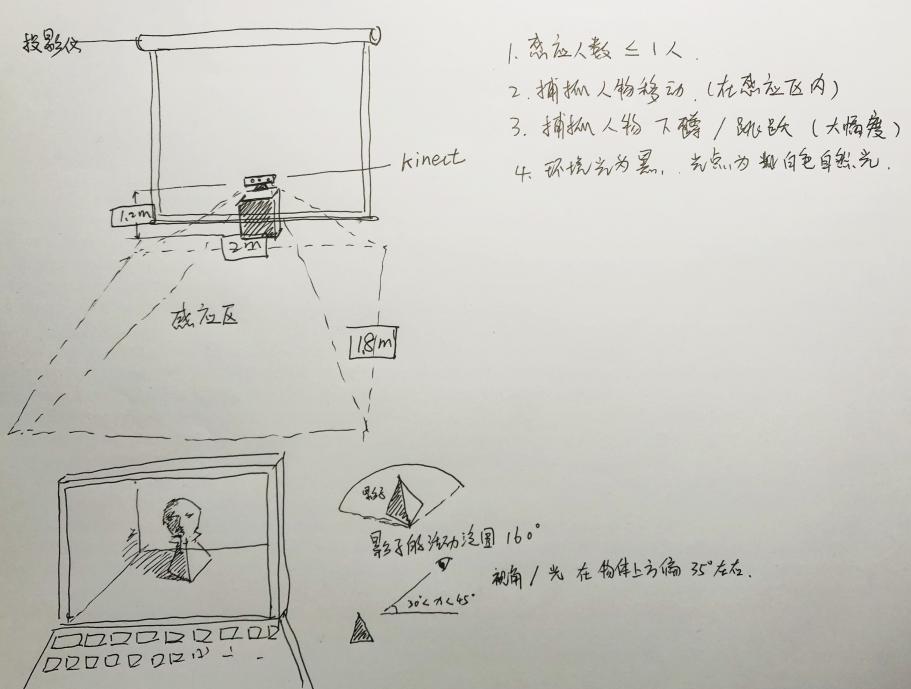 投影仪
1. 感应人数 ≤ 1人.
2. 捕抓人物移动.(在感应区内)
3. 捕抓人物下蹲/跳跃(大幅度)
4. 环境光为黑, 光点为白色自然光.
Kinect
1.2m
2m
感应区
1.8m
影子
影子的活动范围 160°
视角/光 在物体上方偏 35°左右.
30°<x<45°